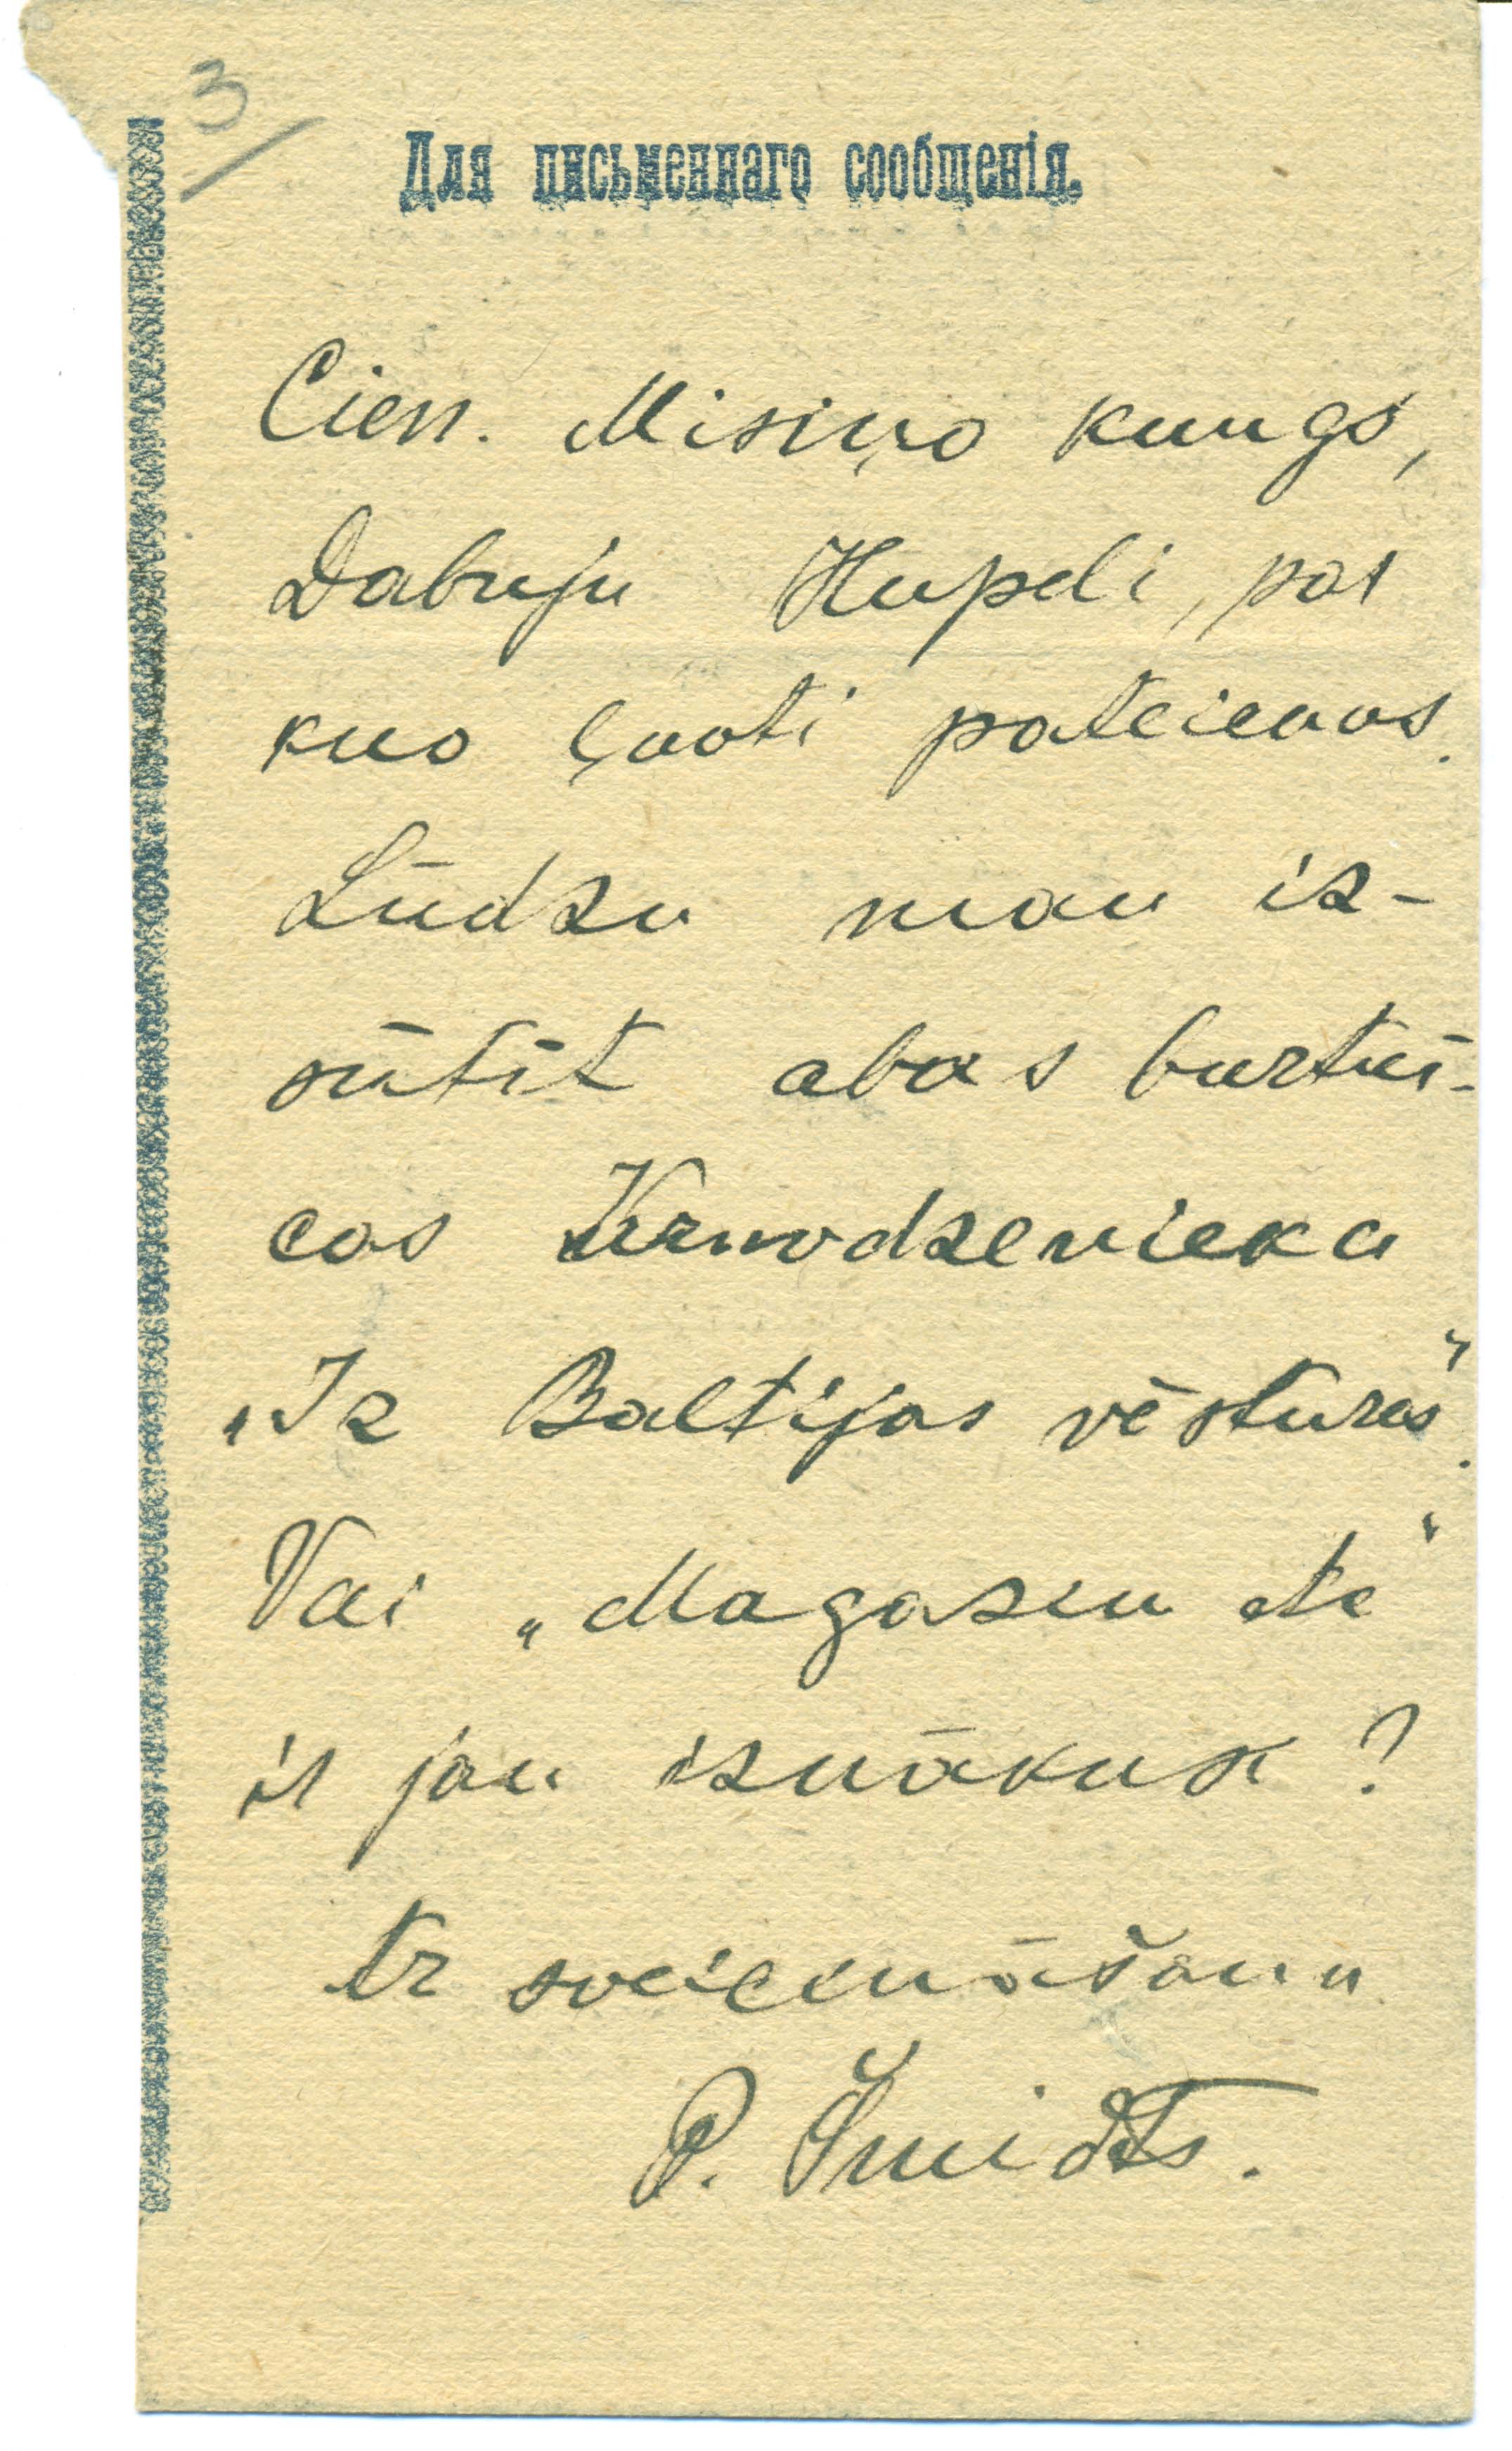 3
Для письменнаго сообщенія.
Cien. Misiņo kungs,
Dabuju Hupeli, par
kuo ļuoti pateicuos.
Lūdzu man iz-
sūtīt abas burtnī-
cas Krnodzenieka
„Iz Baltijas vēstures“.
Vai „Magazin etc“
ir jau iznākusi?
Ar sveicināšanu
P. Šmidts.